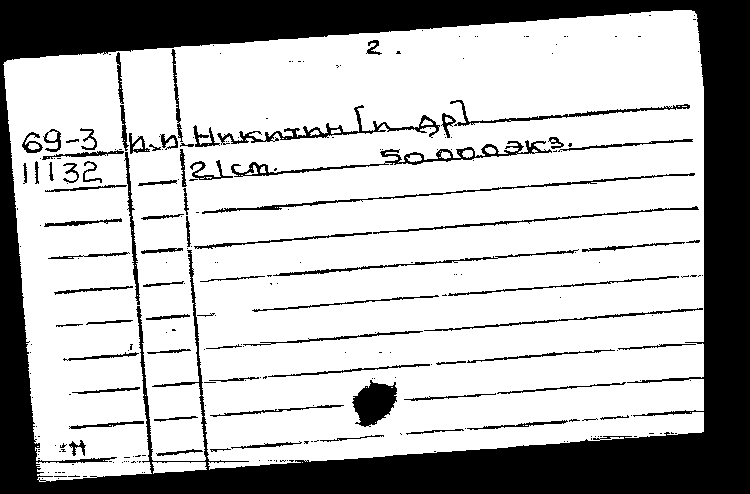 2.
69-3 п.п Никитин [и др]
11132 21 cm. 50 000 экз.